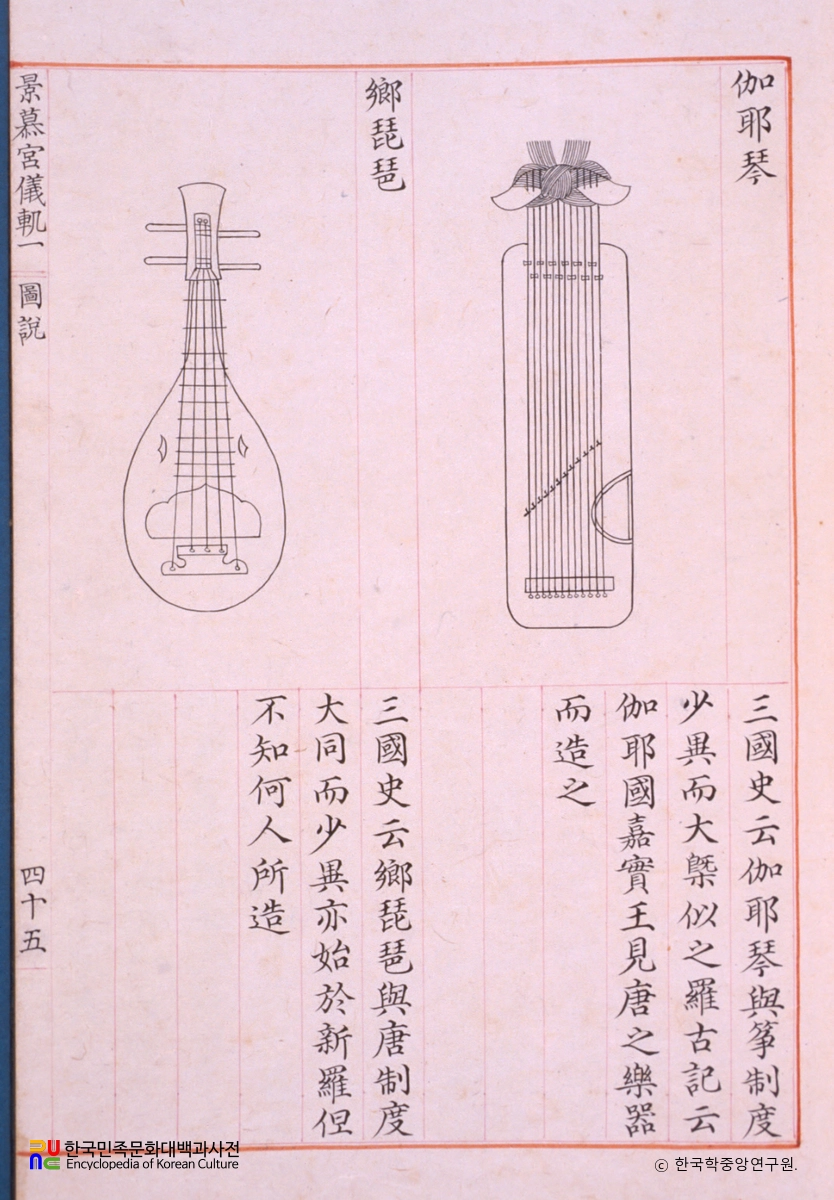 伽耶琴
三國史云伽耶琴與箏制度
少異而大槩似之羅古記云
伽耶國嘉實王見唐之樂器
而造之
鄉琵琶
三國史云鄉琵琶與唐制度
大同而少異亦始於新羅但
不知何人所造
景慕宮儀軌一
圖說
四十五
한국민족문화대백과사전
Encyclopedia of Korean Culture
ⓒ 한국학중앙연구원.